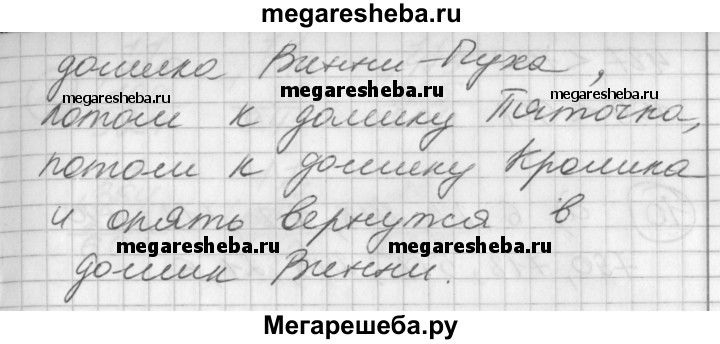 megaresheba.ru
домика Винни-Пуха,
megaresheba.ru megaresheba.ru
потом к домику Пяточка,
потом к домику Кролика
и опять вернутся в
megaresheba.ru megaresheba.ru
домик Винни.
Мегарешеба.ру